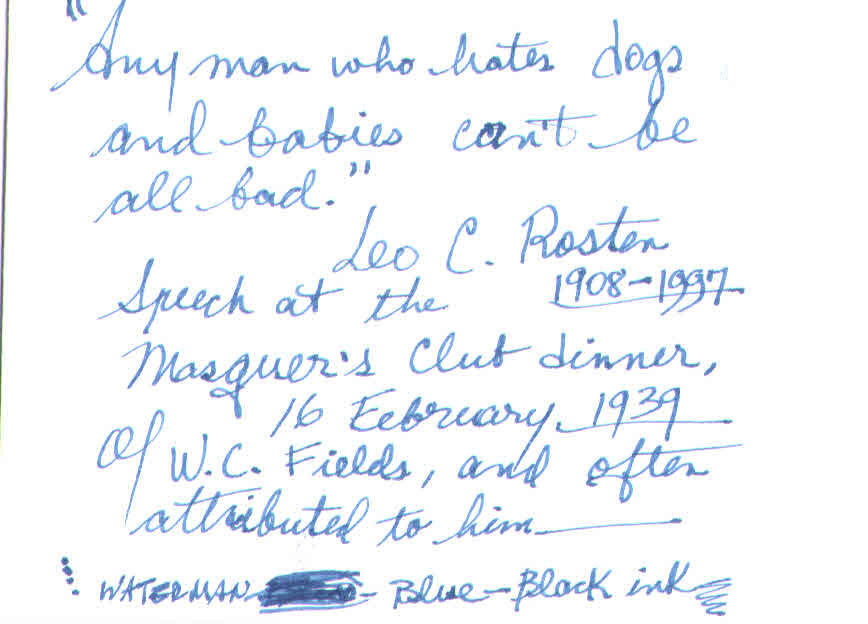 "Any man who hates dogs
and babies can't be
all bad."
Leo C. Rosten
1908-1997
Speech at the
Masquer's Club dinner,
16 February, 1939
Of W.C. Fields, and often
attributed to him
WATERMAN - Blue-Black ink